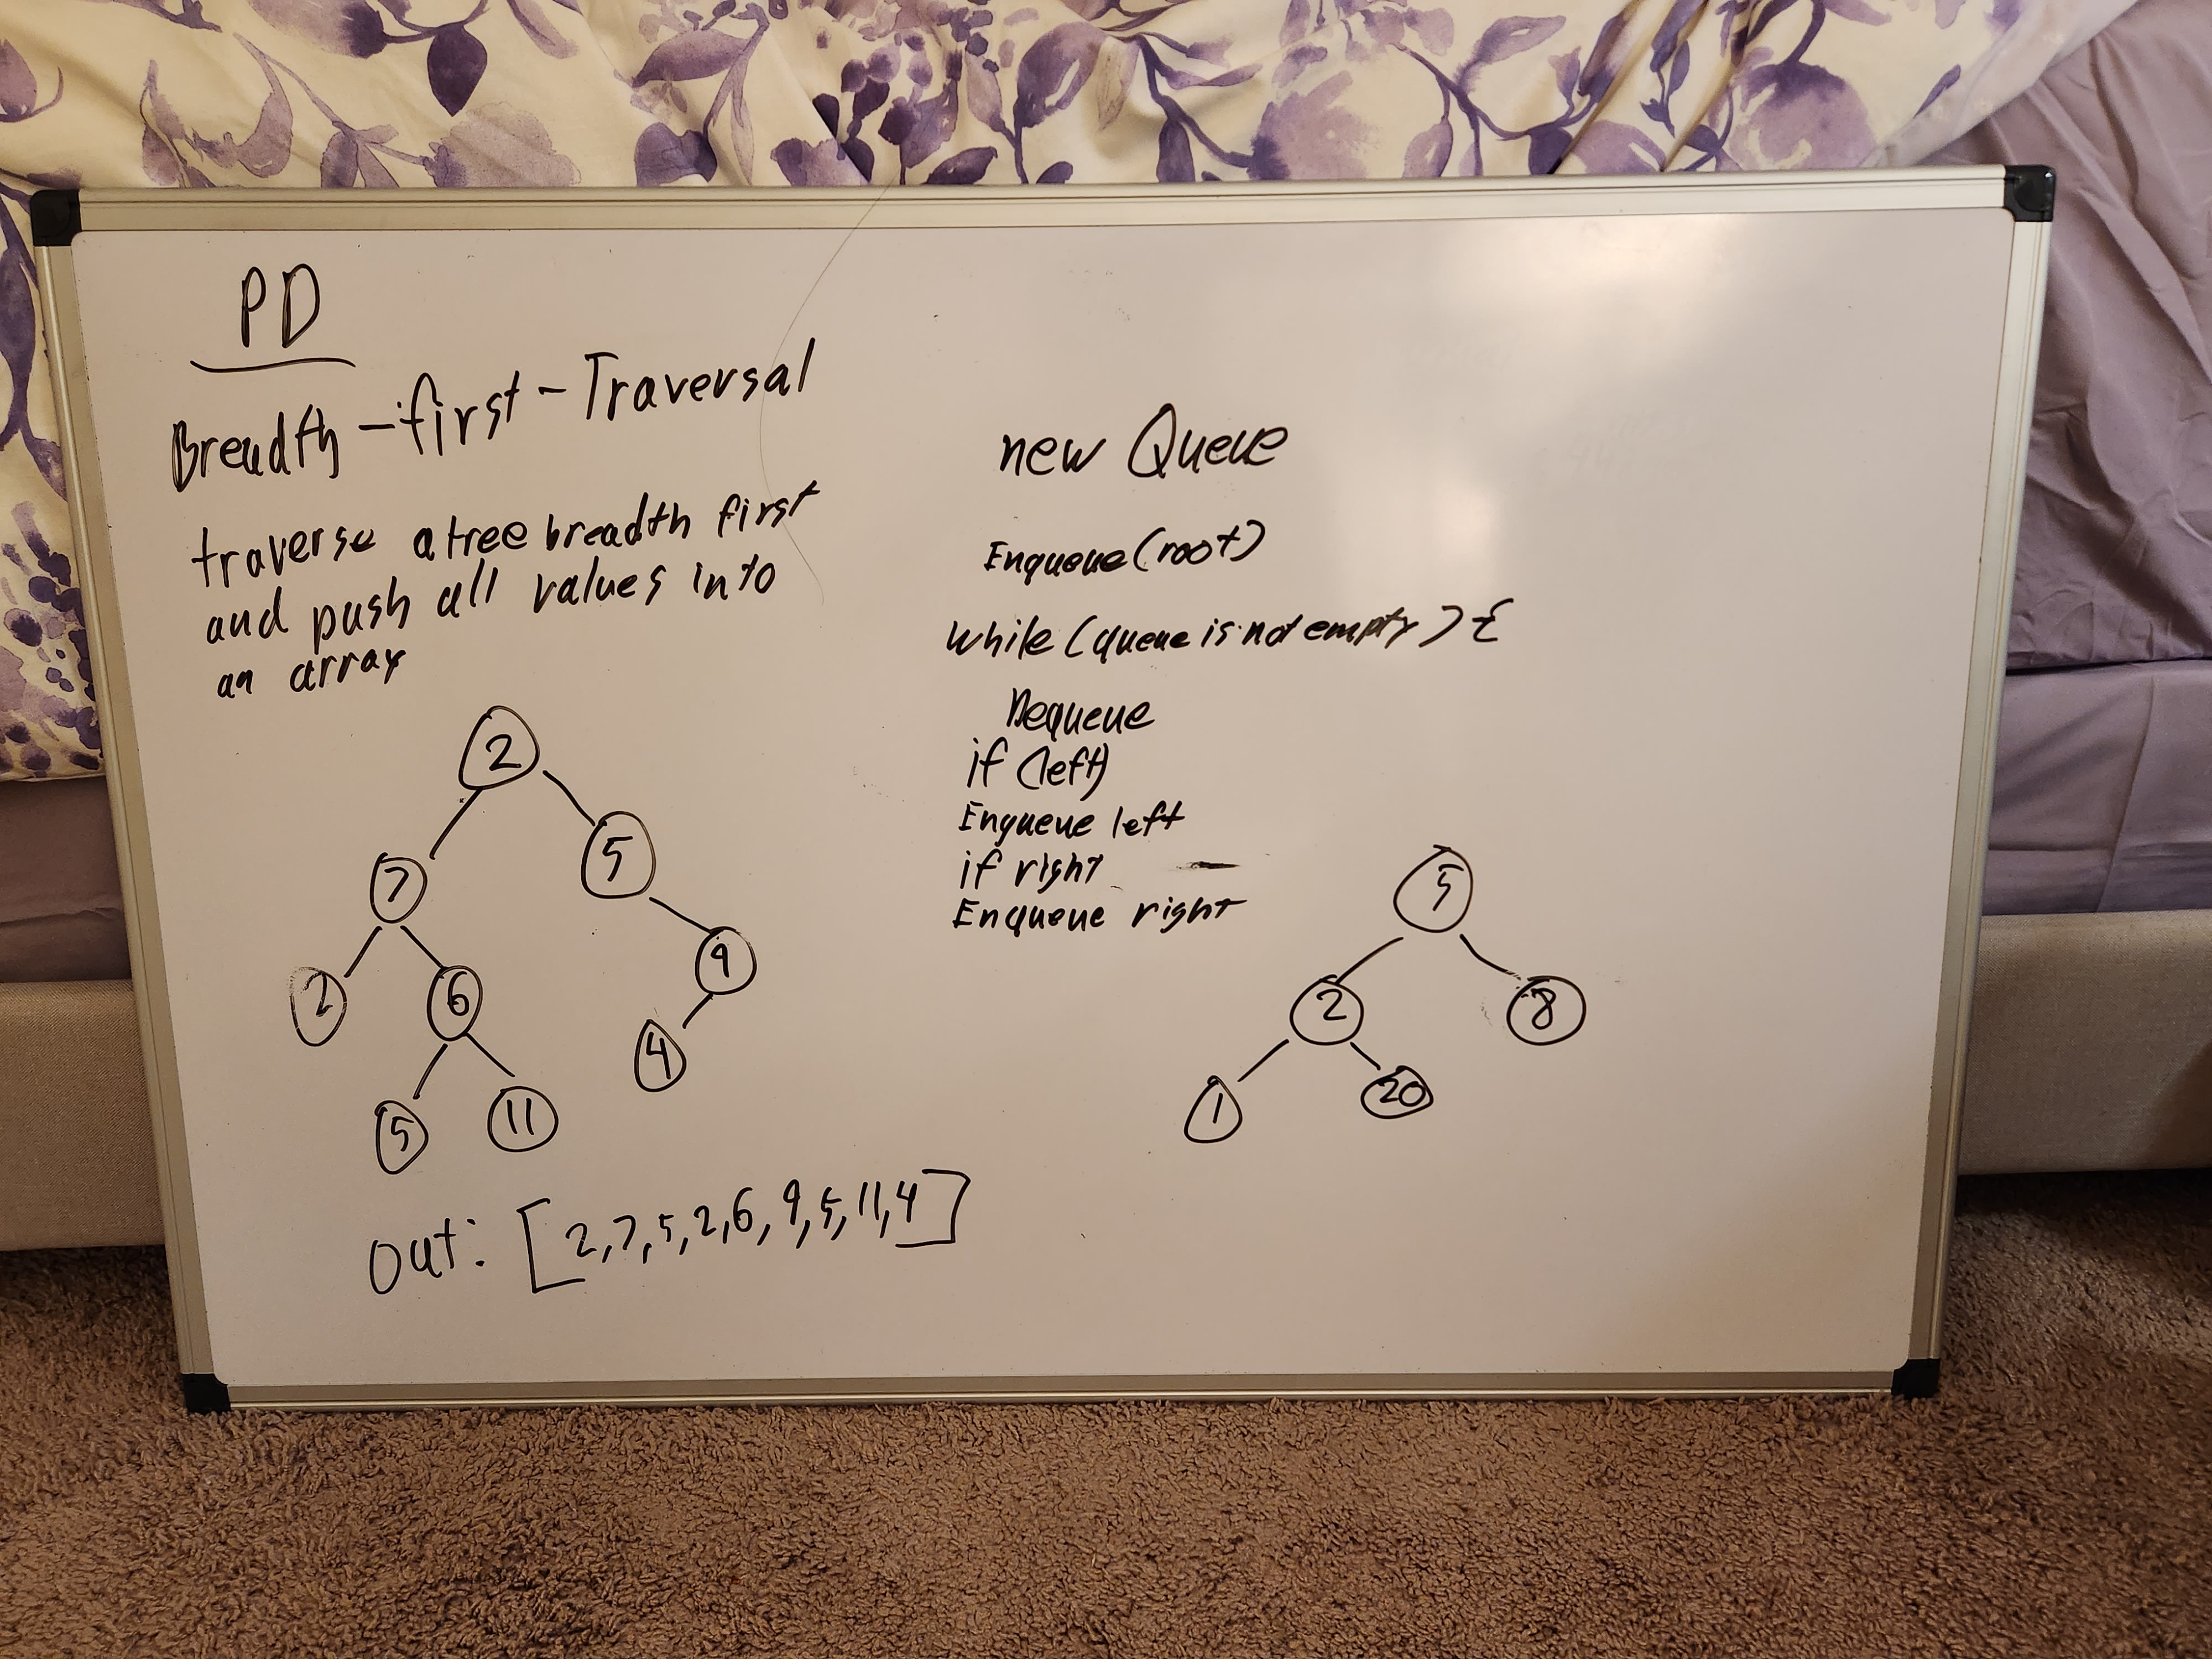 PD
Breadth-first-Traversal
traverse a tree breadth first
and push all values into
an array
2
7
5
2
6
9
5
11
4
out: [2,7,5,2,6,9,5,11,4]
new Queue
Enqueue(root)
while (queue is not empty) {
Dequeue
if (left)
Enqueue left
if right
Enqueue right
5
2
8
1
20